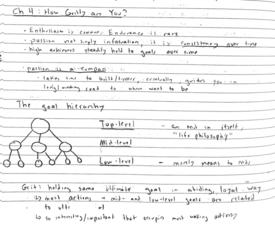 Ch 4: How Gritty are You?
· Enthusiasm is common, Endurance is rare
· passion not simply infatuation, it is consistency over time
· high achievers steadily hold to goals over time
· passion is a compass
- takes time to build/, eventually guides you in
road to where want to be
The goal hierarchy
Top-level - an end in itself,
"life philosophy"
Mid-level
Low-level - merely means to ends
Grit: holding same ultimate goal in abiding, loyal way
↳ most actions + mid- and low-level goals are related
to ult
↳ so interesting/important that most waking activity